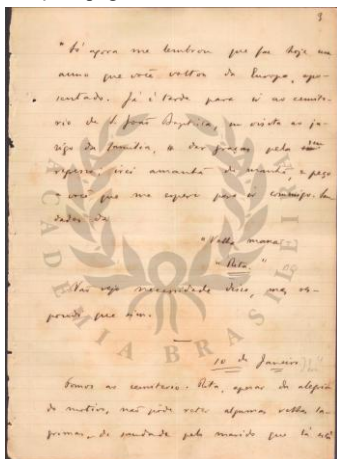 3
"Só agora me lembrou que faz hoje um
anno que você voltou da Europa, apo-
sentado. Já é tarde para ir ao cemite-
rio de S. João Baptista, em visita ao ja-
zigo da familia, e dar graças pelo seu
regresso; irei amanhã de manhã, e peço
a você que me espere para ir commigo. Sau
dades da
"Velha mana
"Rita."
Não vejo necessidade disso, mas res-
pondi que sim.
10 de Janeiro
Fomos ao cemiterio. Rita, apesar da alegria
do motivo, não pôde reter algumas velhas la-
grimas de saudade pelo marido que lá está
ACADEMIA BRASILEIRA